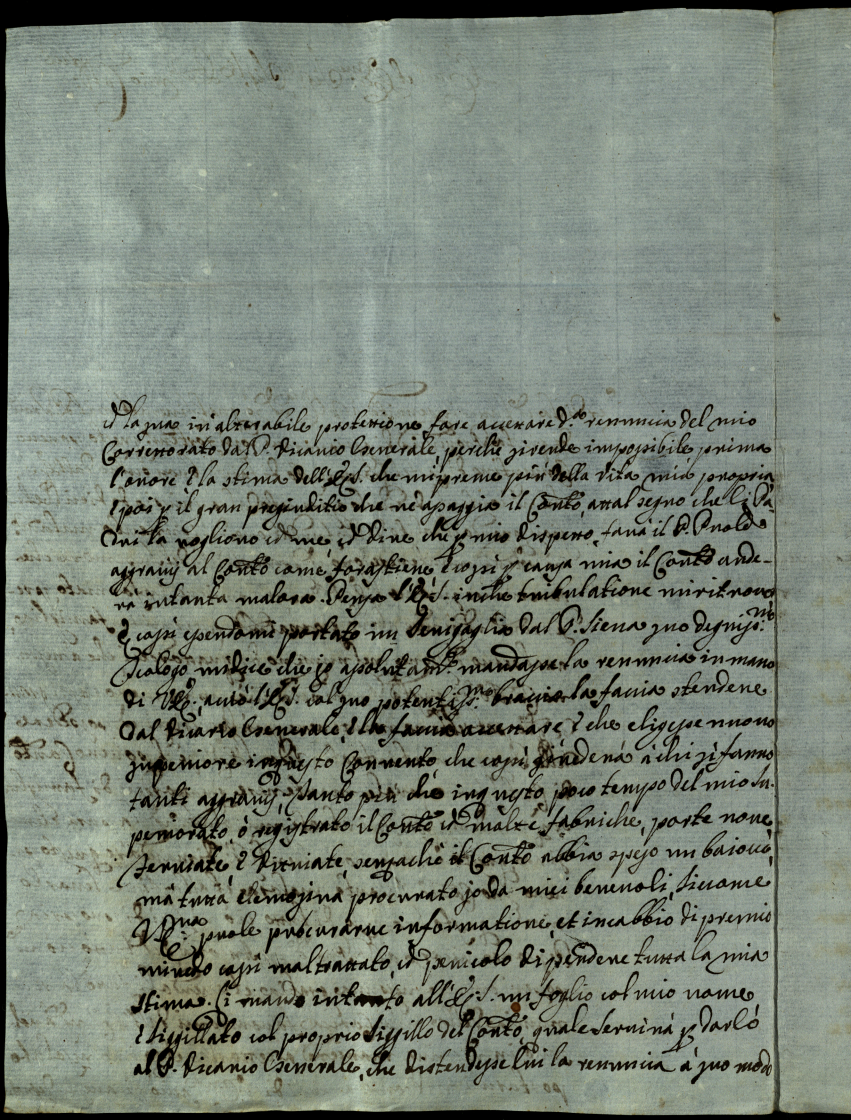 la sua in alterabile protettione fare accettare d.ᵃ renuncia del mio
Correttorato dal P. Vicario Generale, perche si rende impossibile prima
l'onore e la stima dell' che mi preme più della vita mia propria
e poi p il gran pregiuditio che ne apaggia il Conto, attal segno che li Pa-
dri la vogliono me, dire che p mio dispetto, farà il P. Prole
aggravij al Conto come forastiere e cosi p causa mia il Conto ande-
rà in tanta malora. Pensa in che tribulatione mi ritrovo
e cosi essendomi portato in Senigaglia dal P. Siena suo degnis.ᵐᵒ
Teologo mi dice che io asolutam.ᵗᵉ mandasse la renuncia in mano
di col suo potentiss.ᵒ braccio la facia stendere
dal Vicario Generale, e la facia accettare, e che eligesse nuovo
superiore in questo Convento che cosi si vederà à chi si fanno
tanti aggravij, Tanto più che in questo poco tempo del mio Su-
periorato, ò registrato il Conto molte fabriche, porte nove,
serrate, e vitriate, senzache il Conto abbia speso un baiocco,
mà tutta elemosina procurato io da miei benevoli, siccome
puole procurarne informatione, et in cabbio di premio
mi vedo cosi maltrattato, pericolo di perdere tutta la mia
stima. Ci mando intanto all' un foglio col mio nome,
e Siggillato col proprio Siggillo del Conto, quale servirà p darlo
al P. Vicario Generale, che distendesse lui la renuncia à suo modo